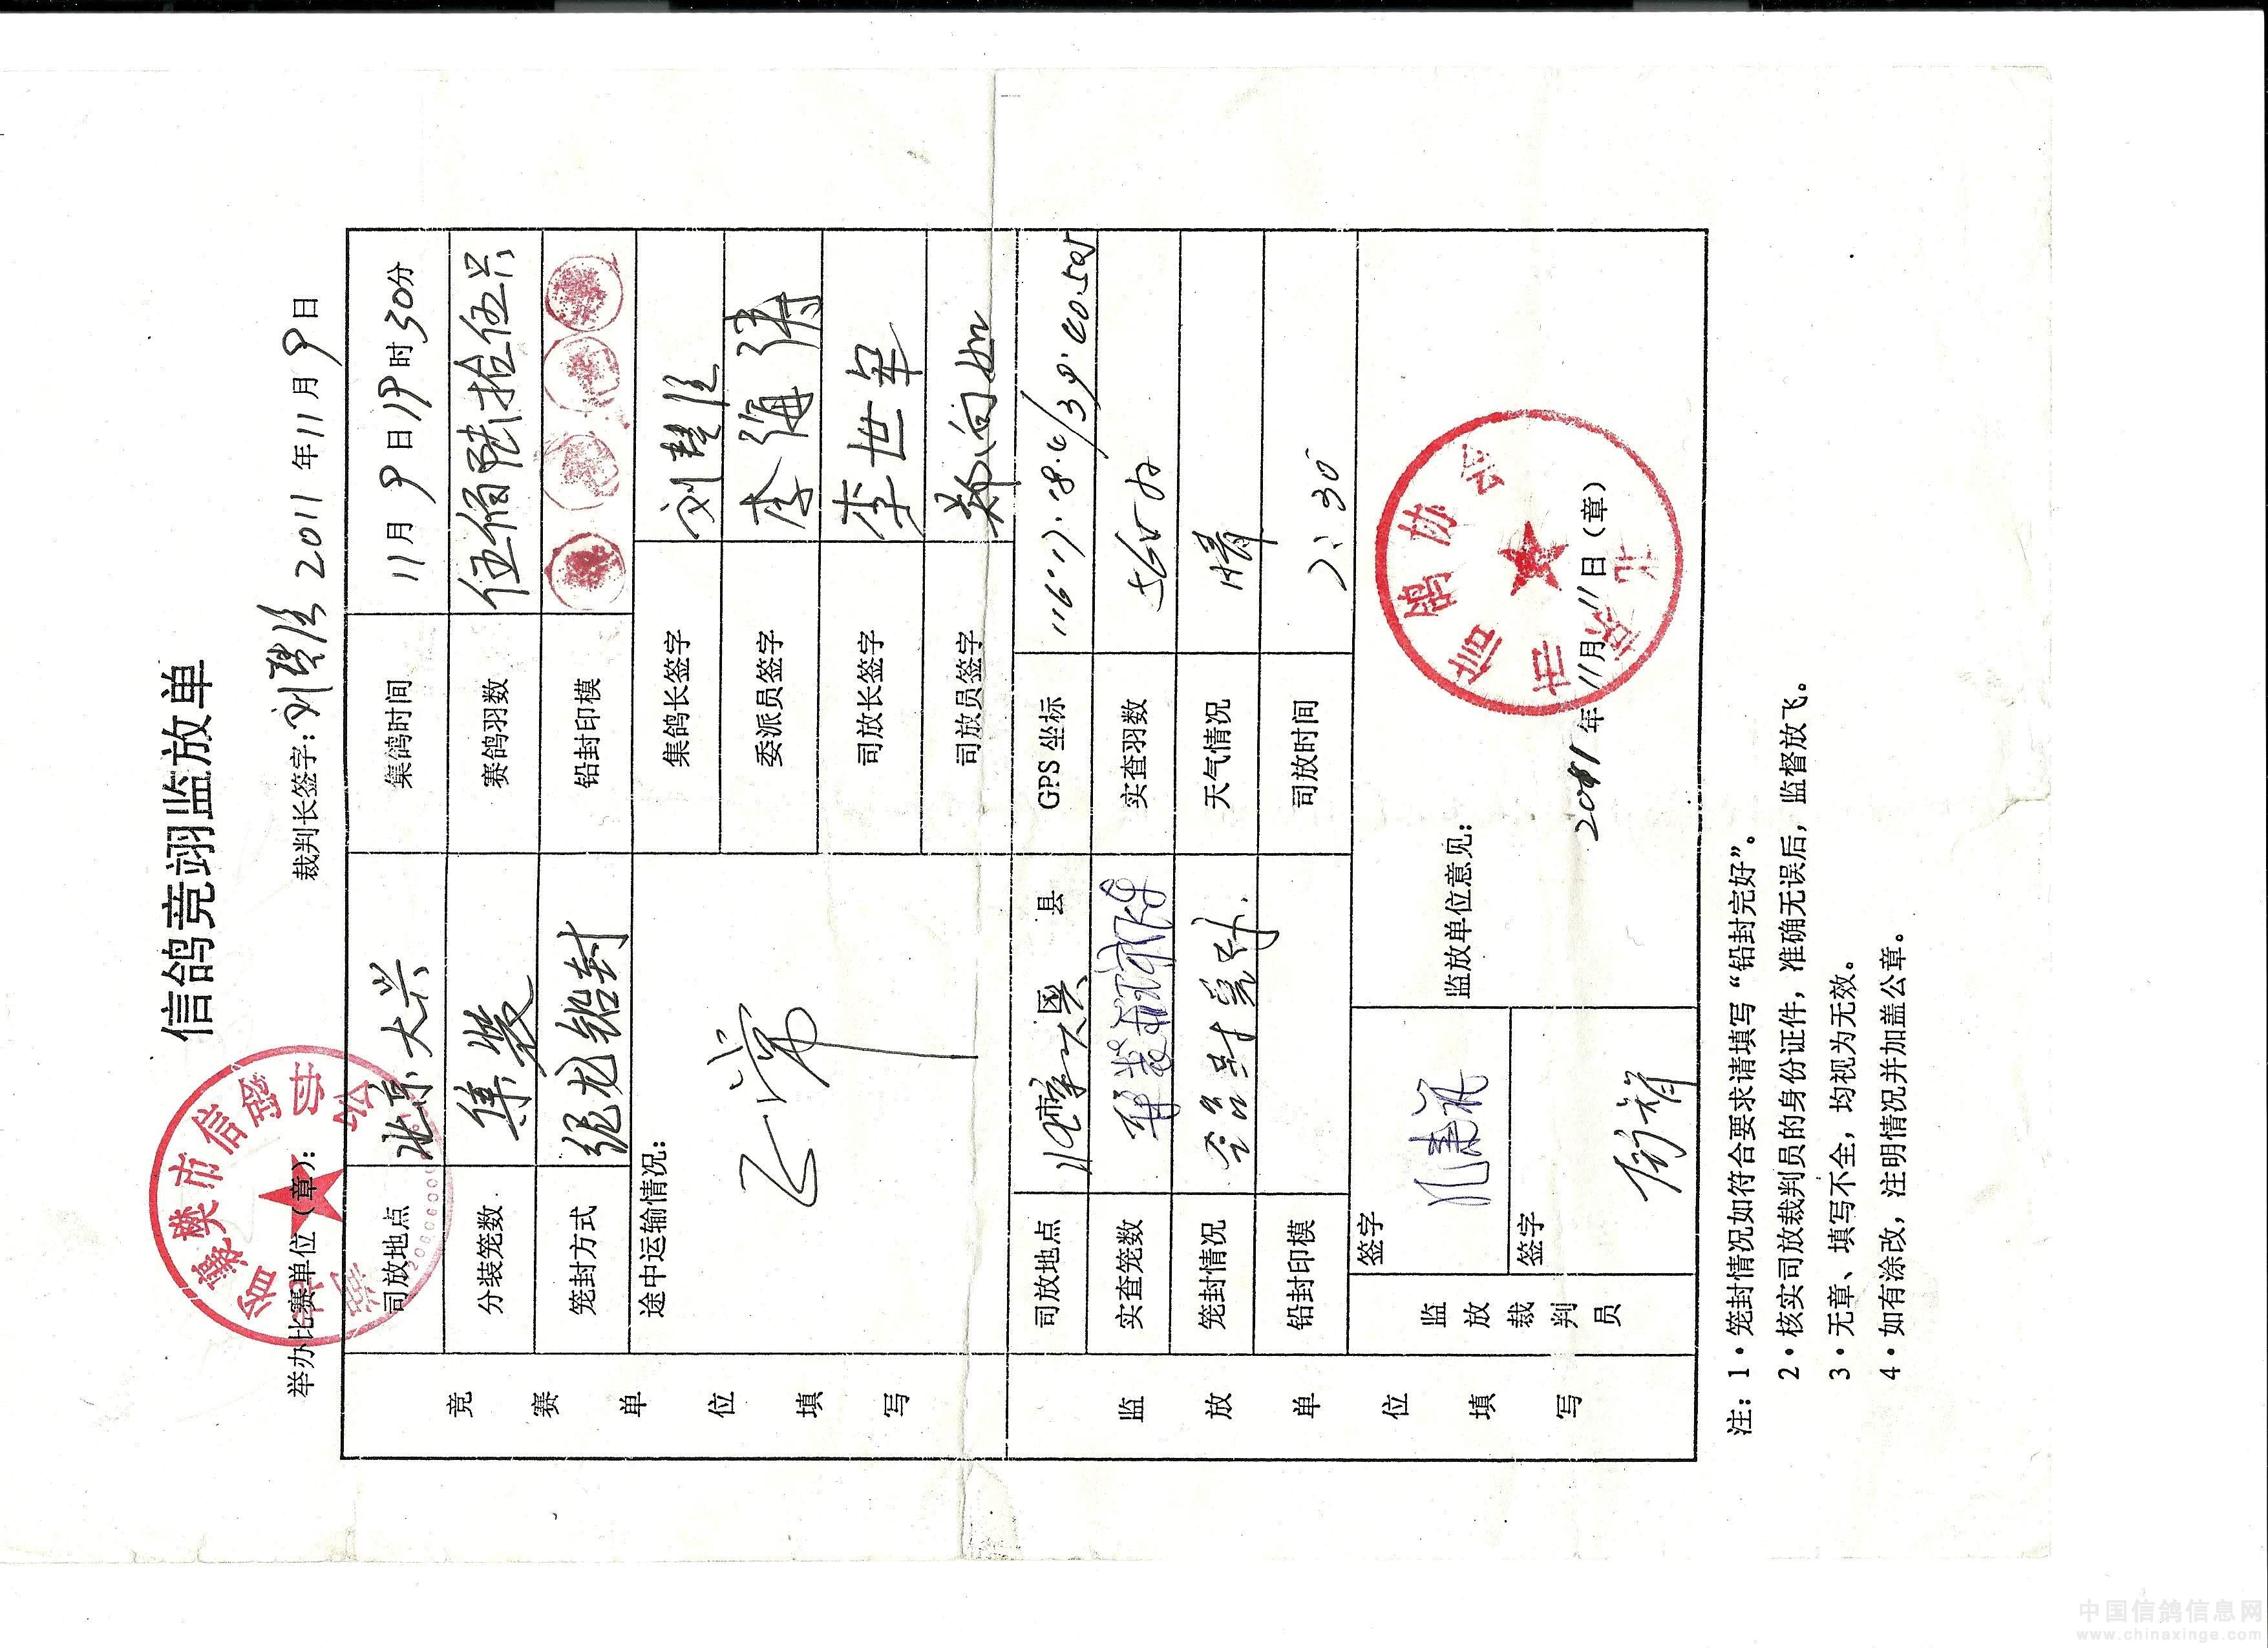 信鸽竞翊监放单
举办比赛单位（章）： 裁判长签字： 2011 年 11 月 9 日
竞赛单位填写
司放地点 北京大兴 集鸽时间 11月 9 日 19 时 30分
分装笼数 集装 赛鸽羽数 伍佰陆拾伍只
笼封方式 铅封 铅封印模
途中运输情况： 正常
集鸽长签字
委派员签字 李海涛
司放长签字 李世军
司放员签字 郑向
监放单位填写
司放地点 大兴 县 GPS 坐标
实查笼数 实查羽数 565羽
笼封情况 天气情况 晴
铅封印模 司放时间 7:30
监放裁判员
签字
签字
监放单位意见：
2011 年 11月 11 日（章）
北京市信鸽协会
注：1·笼封情况如符合要求请填写“铅封完好”。
2·核实司放裁判员的身份证件，准确无误后，监督放飞。
3·无章、填写不全，均视为无效。
4·如有涂改，注明情况并加盖公章。
中国信鸽信息网
www.chinaxinge.com